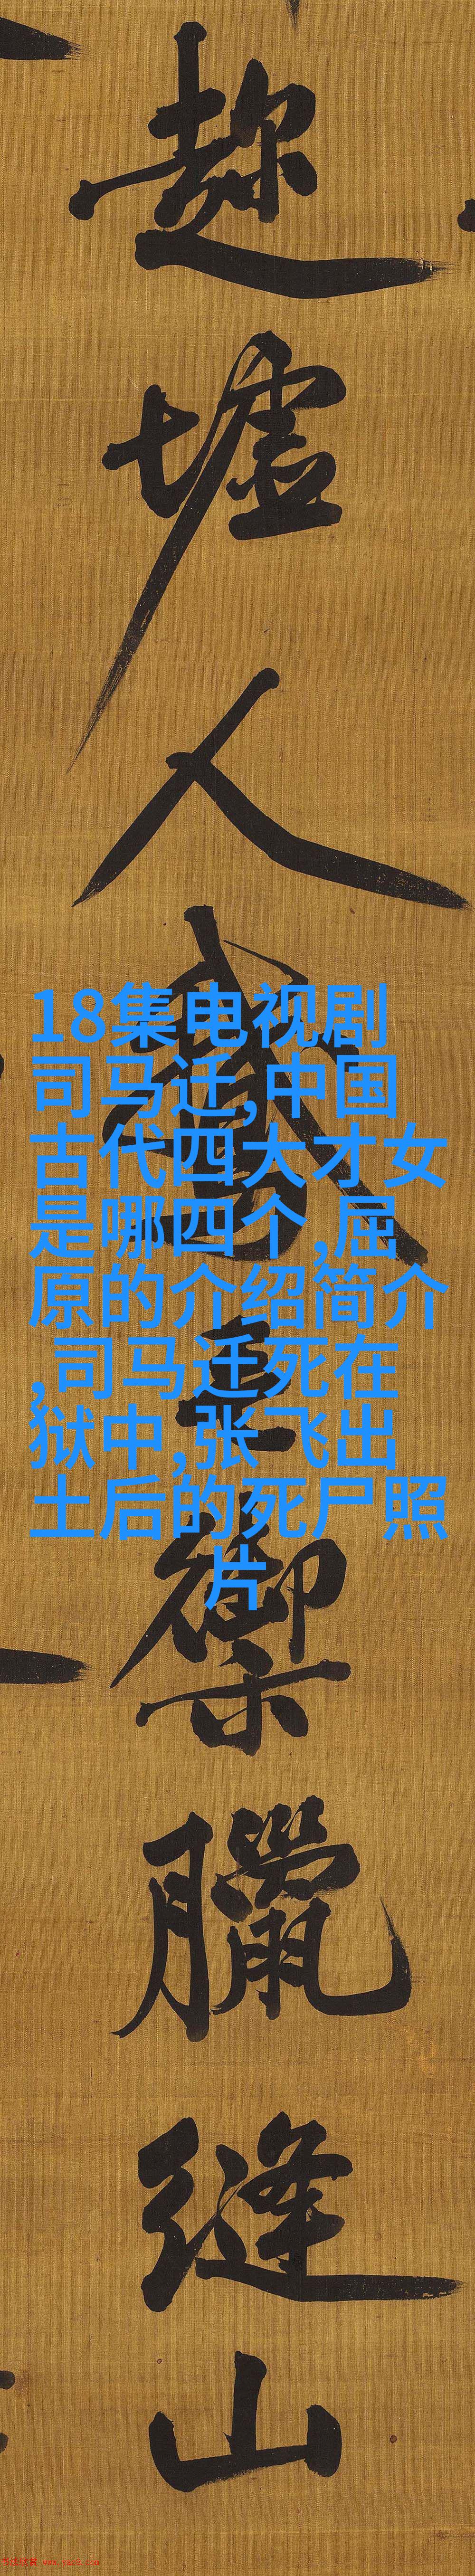 趁墟人
山
18集电视剧
司马迁,中国
古代四大才女
是哪四个,屈
原的介绍简介
,司马迁死在
狱中,张飞出
土后的死尸照
片
御臘缝山